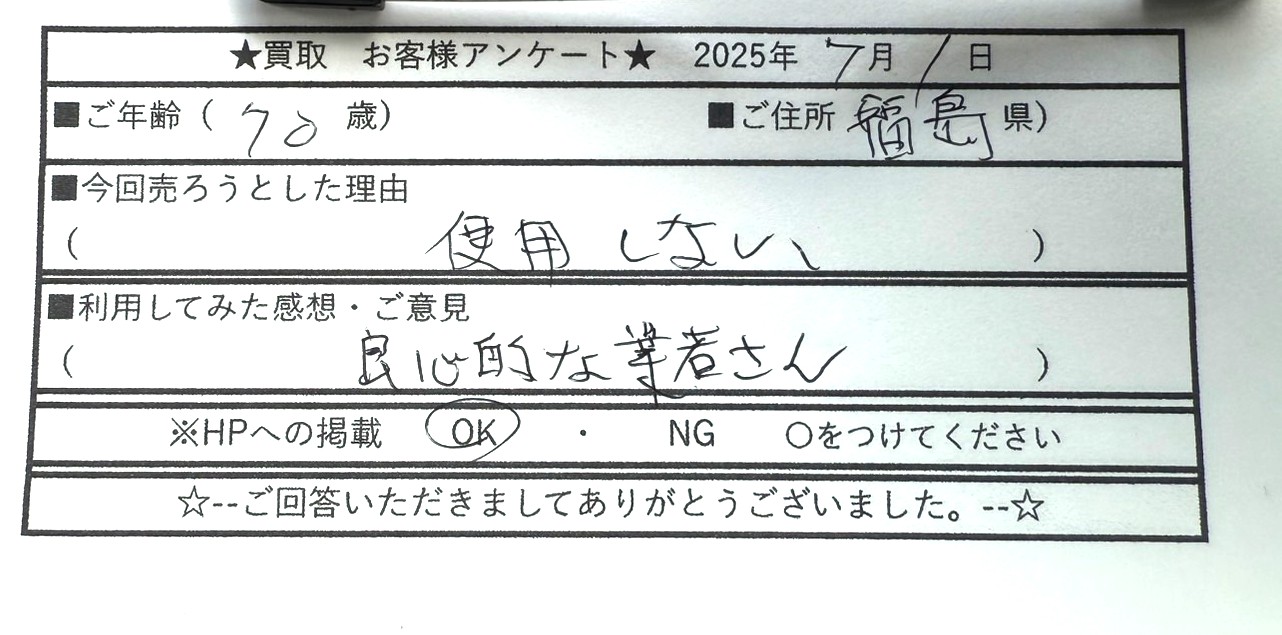 ★買取　お客様アンケート★　2025年 7月 1日
■ご年齢（ 70 歳）　■ご住所 福島 県）
■今回売ろうとした理由
（ 使用しない、 ）
■利用してみた感想・ご意見
（ 良心的な業者さん ）
※HPへの掲載　OK　・　NG　〇をつけてください
☆--ご回答いただきましてありがとうございました。--☆